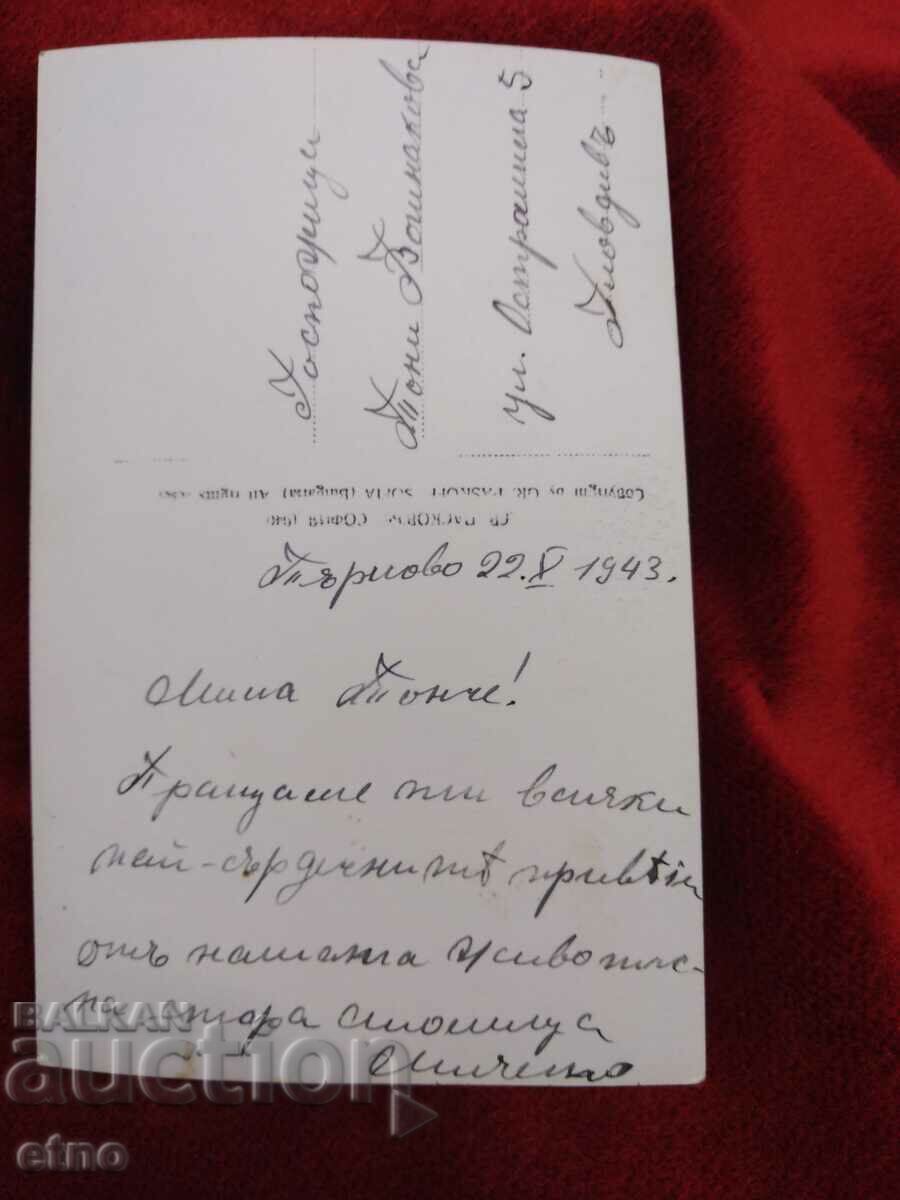 Госпожица
Тони Вошнакова
ул. Остримила 5
Пловдивъ
ГР. ПАСКОВЪ, СОФИЯ
Copyright by GR. PASKOFF SOFIA (Bulgaria) All rights
Търново 22.X 1943.
Мила Тонче!
Пращаме ти всички
най-сърдечнитѣ привѣти
отъ нашата живопис-
на стара столица
Минчето
BALKAN
auction
etno